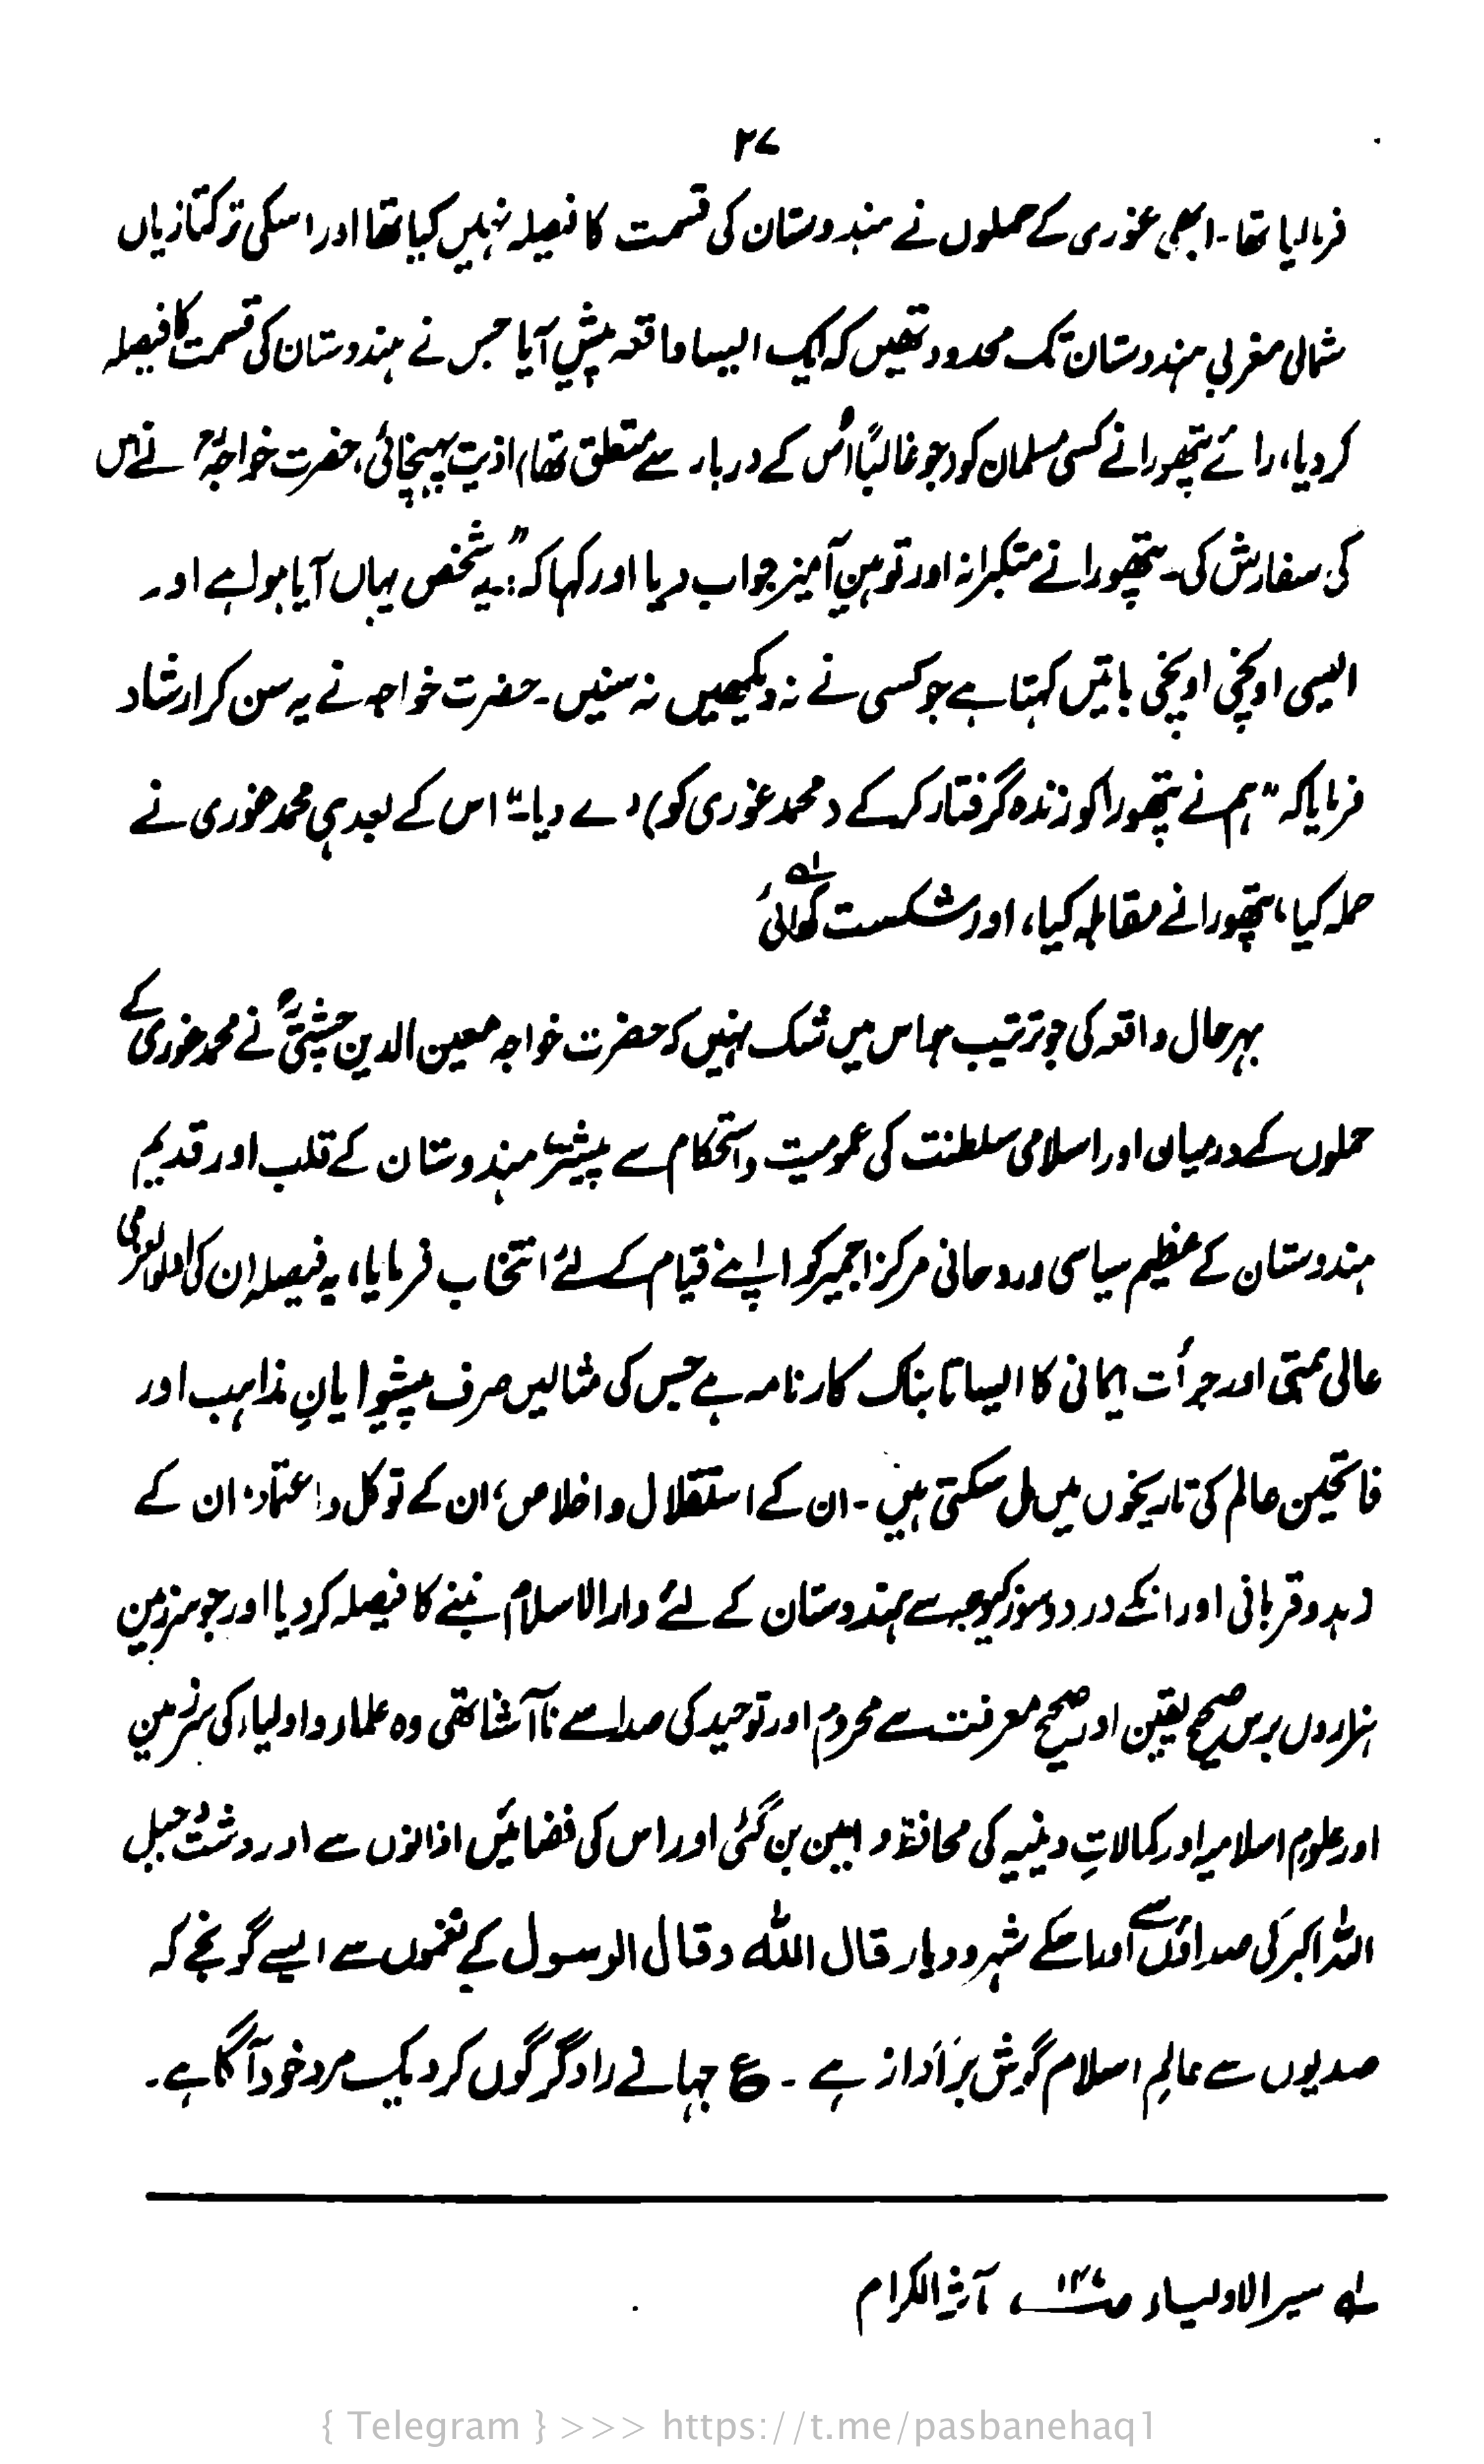 ۲۷
فرمالیا تھا۔ ابھی غوری کے حملوں نے ہندوستان کی قسمت کا فیصلہ نہیں کیا تھا اور اسکی ترکتازیاں
شمالی مغربی ہندوستان تک محدود تھیں کہ ایک ایسا واقعہ پیش آیا جس نے ہندوستان کی قسمت کا فیصلہ
کردیا، رائے پتھورا نے کسی مسلمان کو (جو غالباً اُس کے دربار سے متعلق تھا) اذیت پہنچائی، حضرت خواجہؒ نے اس
کی سفارش کی۔ پتھورا نے متکبرانہ اور توہین آمیز جواب دیا اور کہا کہ: "یہ شخص یہاں آیا ہوا ہے اور
ایسی اونچی اونچی باتیں کہتا ہے جو کسی نے نہ دیکھیں نہ سنیں۔ حضرت خواجہ نے یہ سن کر ارشاد
فرمایا کہ "ہم نے پتھورا کو زندہ گرفتار کر کے (محمد غوری کو) دے دیا۔" اس کے بعد ہی محمد غوری نے
حملہ کیا، پتھورا نے مقابلہ کیا، اور شکست کھائی ؎۱
بہرحال واقعہ کی جو ترتیب ہو اس میں شک نہیں کہ حضرت خواجہ معین الدین چشتیؒ نے محمد غوری کے
حملوں کے درمیان اور اسلامی سلطنت کی عمومیت و استحکام سے پیشتر ہندوستان کے قلب اور قدیم
ہندوستان کے عظیم سیاسی و روحانی مرکز اجمیر کو اپنے قیام کے لئے انتخاب فرمایا، یہ فیصلہ ان کی اولوالعزمی
عالی ہمتی اور جرأت ایمانی کا ایسا تابناک کارنامہ ہے جس کی مثالیں صرف پیشوایانِ مذاہب اور
فاتحین عالم کی تاریخوں میں مل سکتی ہیں۔ ان کے استقلال و اخلاص، ان کے توکل و اعتماد، ان کے
زہد و قربانی اور انکے درد و سوز کیوجہ سے ہندوستان کے لئے دارالاسلام بننے کا فیصلہ کردیا اور جو سرزمین
ہزاروں برس صحیح یقین اور صحیح معرفت سے محروم اور توحید کی صدا سے ناآشنا تھی وہ علماء و اولیاء کی سرزمین
اور علومِ اسلامیہ اور کمالاتِ دینیہ کی محافظ و امین بن گئی اور اس کی فضائیں اذانوں سے اور دشت و جبل
اللہ اکبر کی صداؤں سے اور اسکے شہر و دیار قال اللہ و قال الرسول کے نغموں سے ایسے گونجے کہ
صدیوں سے عالمِ اسلام گوش بر آواز ہے ۔ ع جہانے را دگرگوں کرد یک مرد خود آگاہے۔
؎۱ سیر الاولیاء مآثر الکرام
{ Telegram } >>> https://t.me/pasbanehaq1